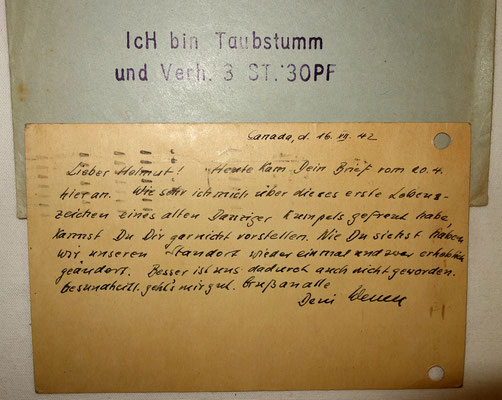 IcH bin Taubstumm
und Verh. 3 ST. 30PF
Canada, d. 16. VII. 42
Lieber Helmut! Heute kam Dein Brief vom 20.4.
hier an. Wie sehr ich mich über dieses erste Lebens-
zeichen eines alten Danziger Kumpels gefreut habe,
kannst Du Dir gar nicht vorstellen. Wie Du siehst haben
wir unseren Standort wieder einmal und zwar erheblich
geändert. Besser ist uns dadurch auch nicht geworden.
Gesundheitl. geht's mir gut. Gruß an alle
Dein